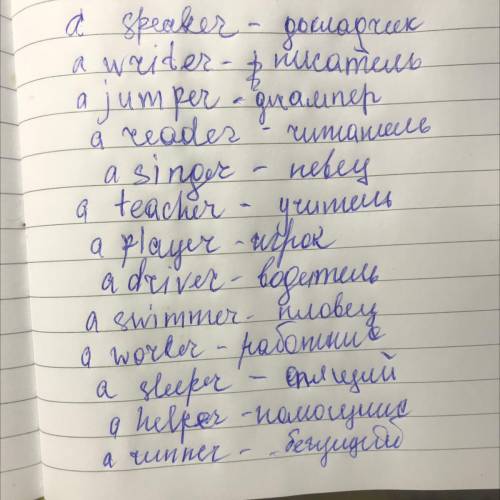 a speaker - докладчик
a writer - писатель
a jumper - джампер
a reader - читатель
a singer - певец
a teacher - учитель
a player - игрок
a driver - водетель
a swimmer - пловец
a worker - работник
a sleeper - спящий
a helper - помощник
a runner -